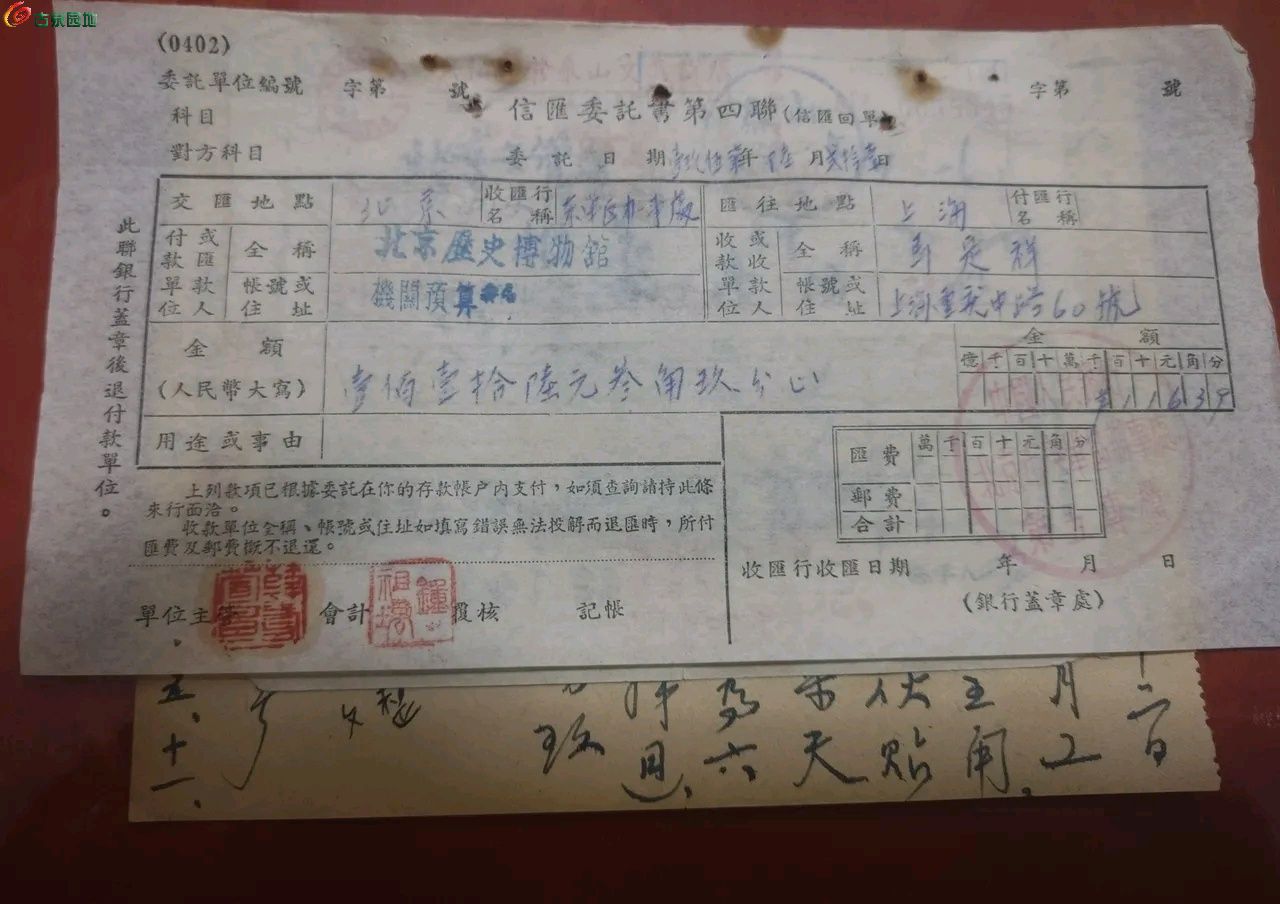 (0402)
委託單位編號 字第 號 字第 號
科目
信匯委託書第四聯(信匯回單)
對方科目
委託日期 年 月 日
交匯地點 北京 收匯行名稱 匯往地點 上海 付匯行名稱
付款單位或匯款人 全稱 北京歷史博物館 收款單位或收款人 全稱 祥
帳號或住址 機關預算 帳號或住址 上海重慶中路60號
金額(人民幣大寫) 壹佰壹拾陸元叁角玖分正
金額
億千百十萬千百十元角分
11639
用途或事由
匯費 萬千百十元角分
郵費
合計
上列款項已根據委託在你的存款帳户内支付，如須查詢請持此條
來行面洽。
收款單位全稱、帳號或住址如填寫錯誤無法投解而退匯時，所付
匯費及郵費概不退還。
收匯行收匯日期 年 月 日
(銀行蓋章處)
單位主管 會計 覆核 記帳
此聯銀行蓋章後退付款單位。
月工
天貼
為六
五、十一、